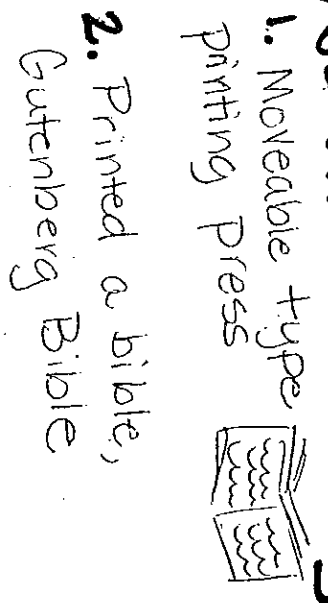 1. Moveable type
printing press
2. Printed a bible,
Gutenberg Bible